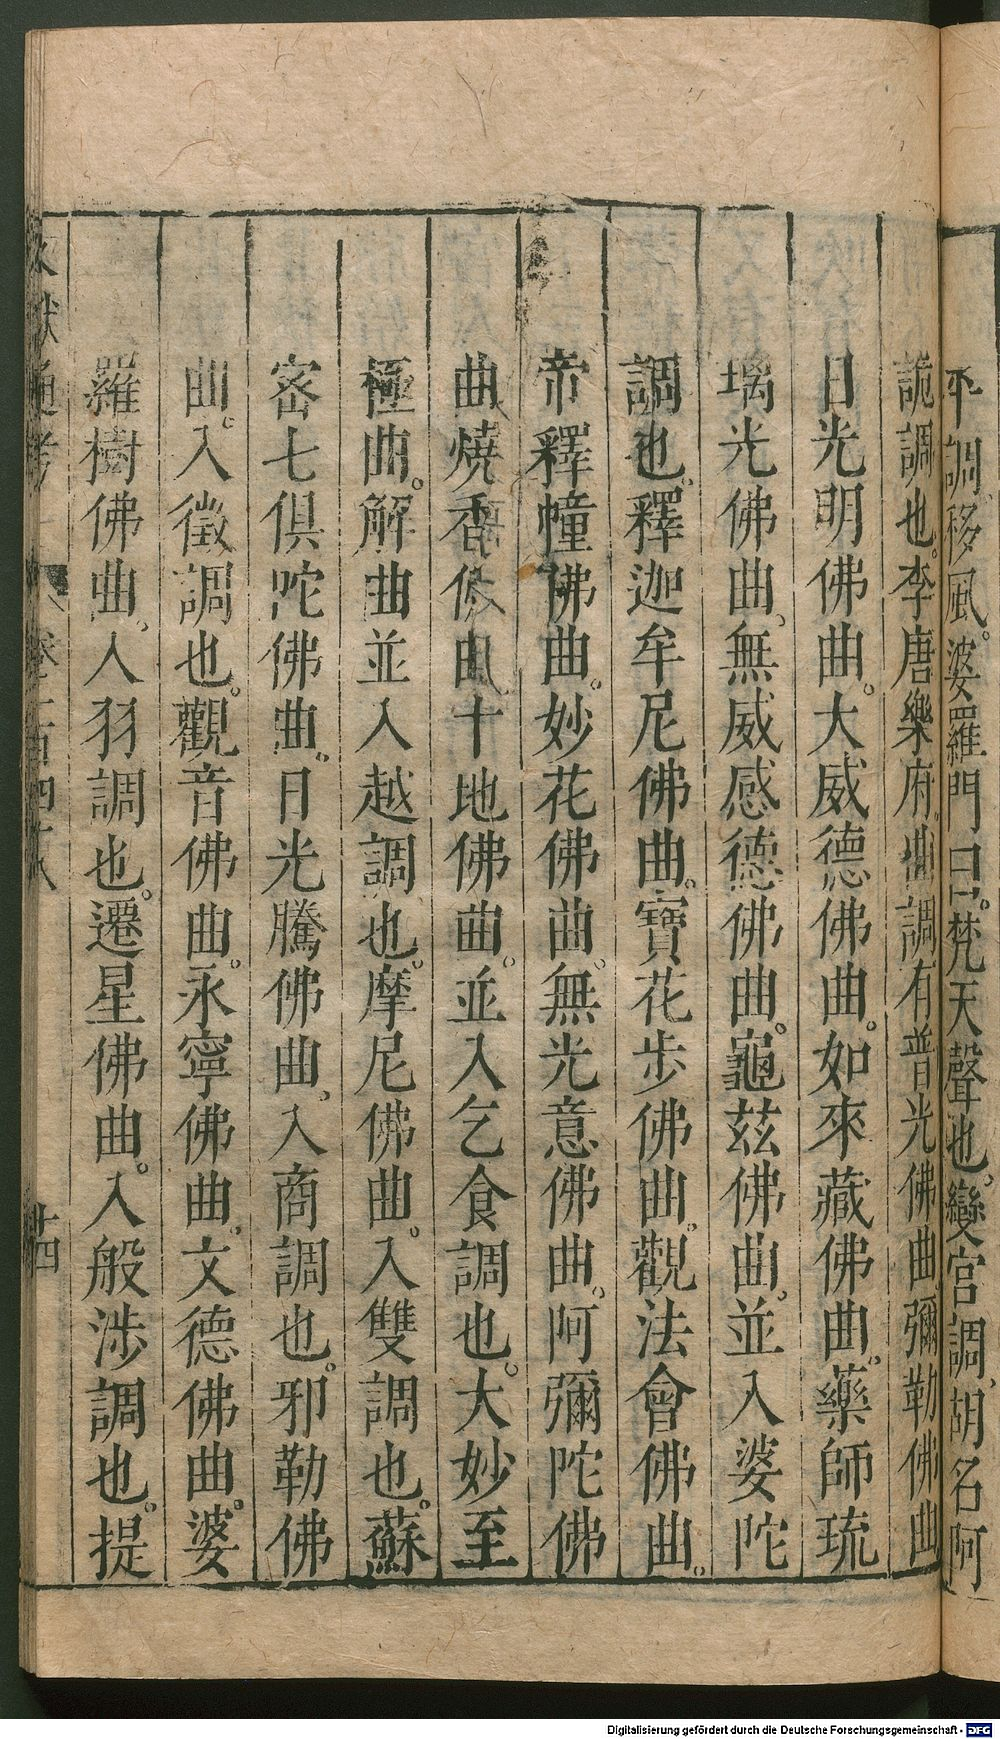 平調移風。婆羅門曰。梵天聲也。變宮調、胡名阿
詭調也。李唐樂府。曲調有普光佛曲。彌勒佛曲
日光明佛曲。大威德佛曲。如來藏佛曲。藥師琉
璃光佛曲、無威感德佛曲。龜茲佛曲。並入婆陀
調也。釋迦牟尼佛曲。寶花步佛曲。觀法會佛曲。
帝釋幢佛曲。妙花佛曲。無光意佛曲。阿彌陀佛
曲燒香佛曲十地佛曲。並入乞食調也。大妙至
極曲。解曲並入越調也。摩尼佛曲。入雙調也。蘇
密七俱陀佛曲。日光騰佛曲、入商調也。邪勒佛
曲。入徵調也。觀音佛曲。永寧佛曲。文德佛曲。婆
羅樹佛曲、入羽調也。遷星佛曲。入般涉調也。提
文獻通考 卷一百四八 十四
Digitalisierung gefördert durch die Deutsche Forschungsgemeinschaft - DFG